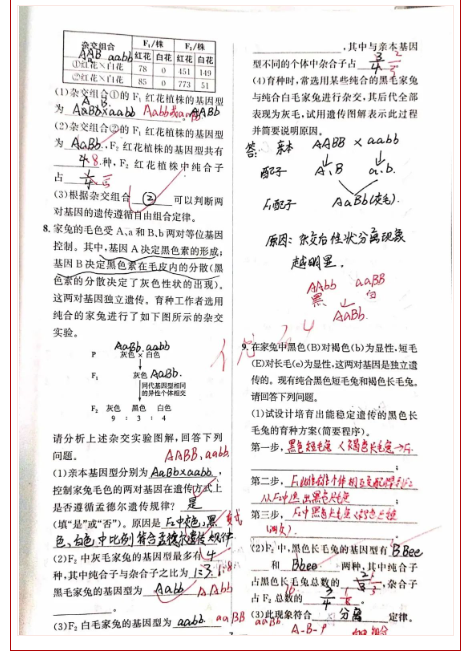 杂交组合 F₁/株 F₂/株
红花 白花 红花 白花
①红花×白花 78 0 451 149
②红花×白花 85 0 773 51
(1)杂交组合①的 F₁ 红花植株的基因型
为 AaBb×aabb
(2)杂交组合②的 F₁ 红花植株的基因型
为 AaBb,F₂ 红花植株的基因型共有
4 8 种,F₂ 红花植株中纯合子
占
(3)根据杂交组合 ② 可以判断两
对基因的遗传遵循自由组合定律。
8. 家兔的毛色受 A、a 和 B、b 两对等位基因
控制。其中,基因 A 决定黑色素的形成;
基因 B 决定黑色素在毛皮内的分散(黑
色素的分散决定了灰色性状的出现)。
这两对基因独立遗传。育种工作者选用
纯合的家兔进行了如下图所示的杂交
实验。
AaBb aabb
P 灰色 × 白色
F₁ 灰色 AaBb.
同代基因型相同
的异性个体相交
F₂ 灰色 黑色 白色
9 : 3 : 4
请分析上述杂交实验图解,回答下列
问题。
AABB, aabb
(1)亲本基因型分别为 AaBb×aabb,
控制家兔毛色的两对基因在遗传方式上
是否遵循孟德尔遗传规律? 是
(填“是”或“否”)。原因是 F₂中灰色,黑
色、白色中比例符合孟德尔遗传规律
(2)F₂ 中灰毛家兔的基因型最多有 4
种,其中纯合子与杂合子之比为 1:3 1:8
黑毛家兔的基因型为 Aabb AAbb
。
(3)F₂ 白毛家兔的基因型为 aabb aaBB aaBb
,其中与亲本基因
型不同的个体中杂合子占 3/4
(4)育种时,常选用某些纯合的黑毛家兔
与纯合白毛家兔进行杂交,其后代全部
表现为灰毛,试用遗传图解表示此过程
并简要说明原因。
答: 亲本 AABB × aabb
配子 A、B a、b.
F₁配子 AaBb(灰毛).
原因: 杂交后性状分离现象
越明显.
AAbb aaBB
黑 白
AaBb.
9. 在家兔中黑色(B)对褐色(b)为显性,短毛
(E)对长毛(e)为显性,这两对基因是独立遗
传的。现有纯合黑色短毛兔和褐色长毛兔。
请回答下列问题。
(1)试设计培育出能稳定遗传的黑色长
毛兔的育种方案(简要程序)。
第一步, 黑色短毛兔×褐色长毛兔→F₁
;
第二步,
从F₂中选出黑色长毛兔 ;
第三步, F₂中黑色长毛兔×褐色长毛兔
。
(2)F₂ 中,黑色长毛兔的基因型有 BBee
和 Bbee 两种,其中纯合子
占黑色长毛兔总数的 ,杂合子
占 F₂ 总数的 。
(3)此现象符合 分离 定律。